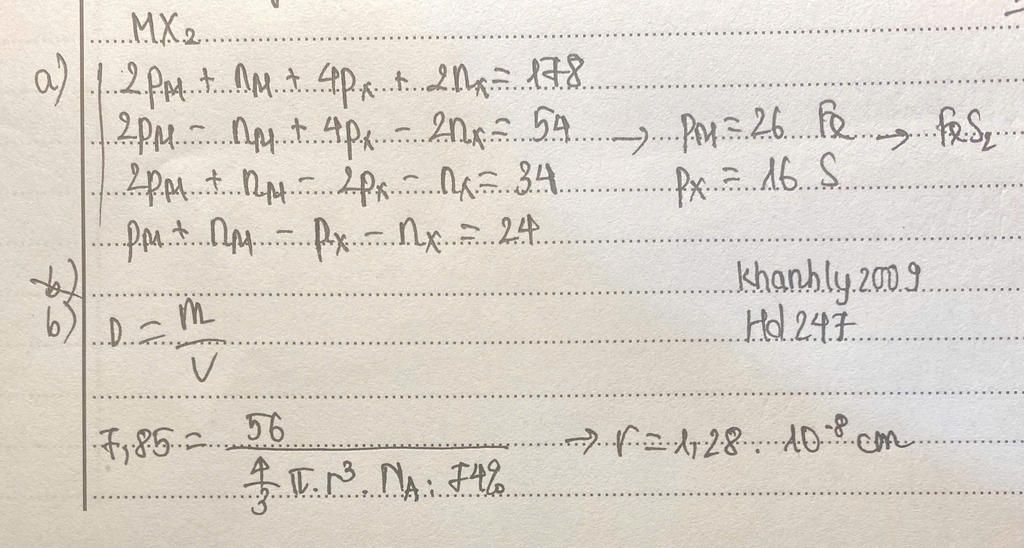 MX₂
a) 2pM + nM + 4pX + 2nX = 178
2pM - nM + 4pX - 2nX = 54 → pM = 26 Fe → FeS₂
2pM + nM - 2pX - nX = 34 pX = 16 S
pM + nM - pX - nX = 24
b)
khanhly2009
b) D = m/V
Hd247
7,85 = 56 / (4/3 π.r³.NA : 74%) → r = 1,28.10⁻⁸ cm